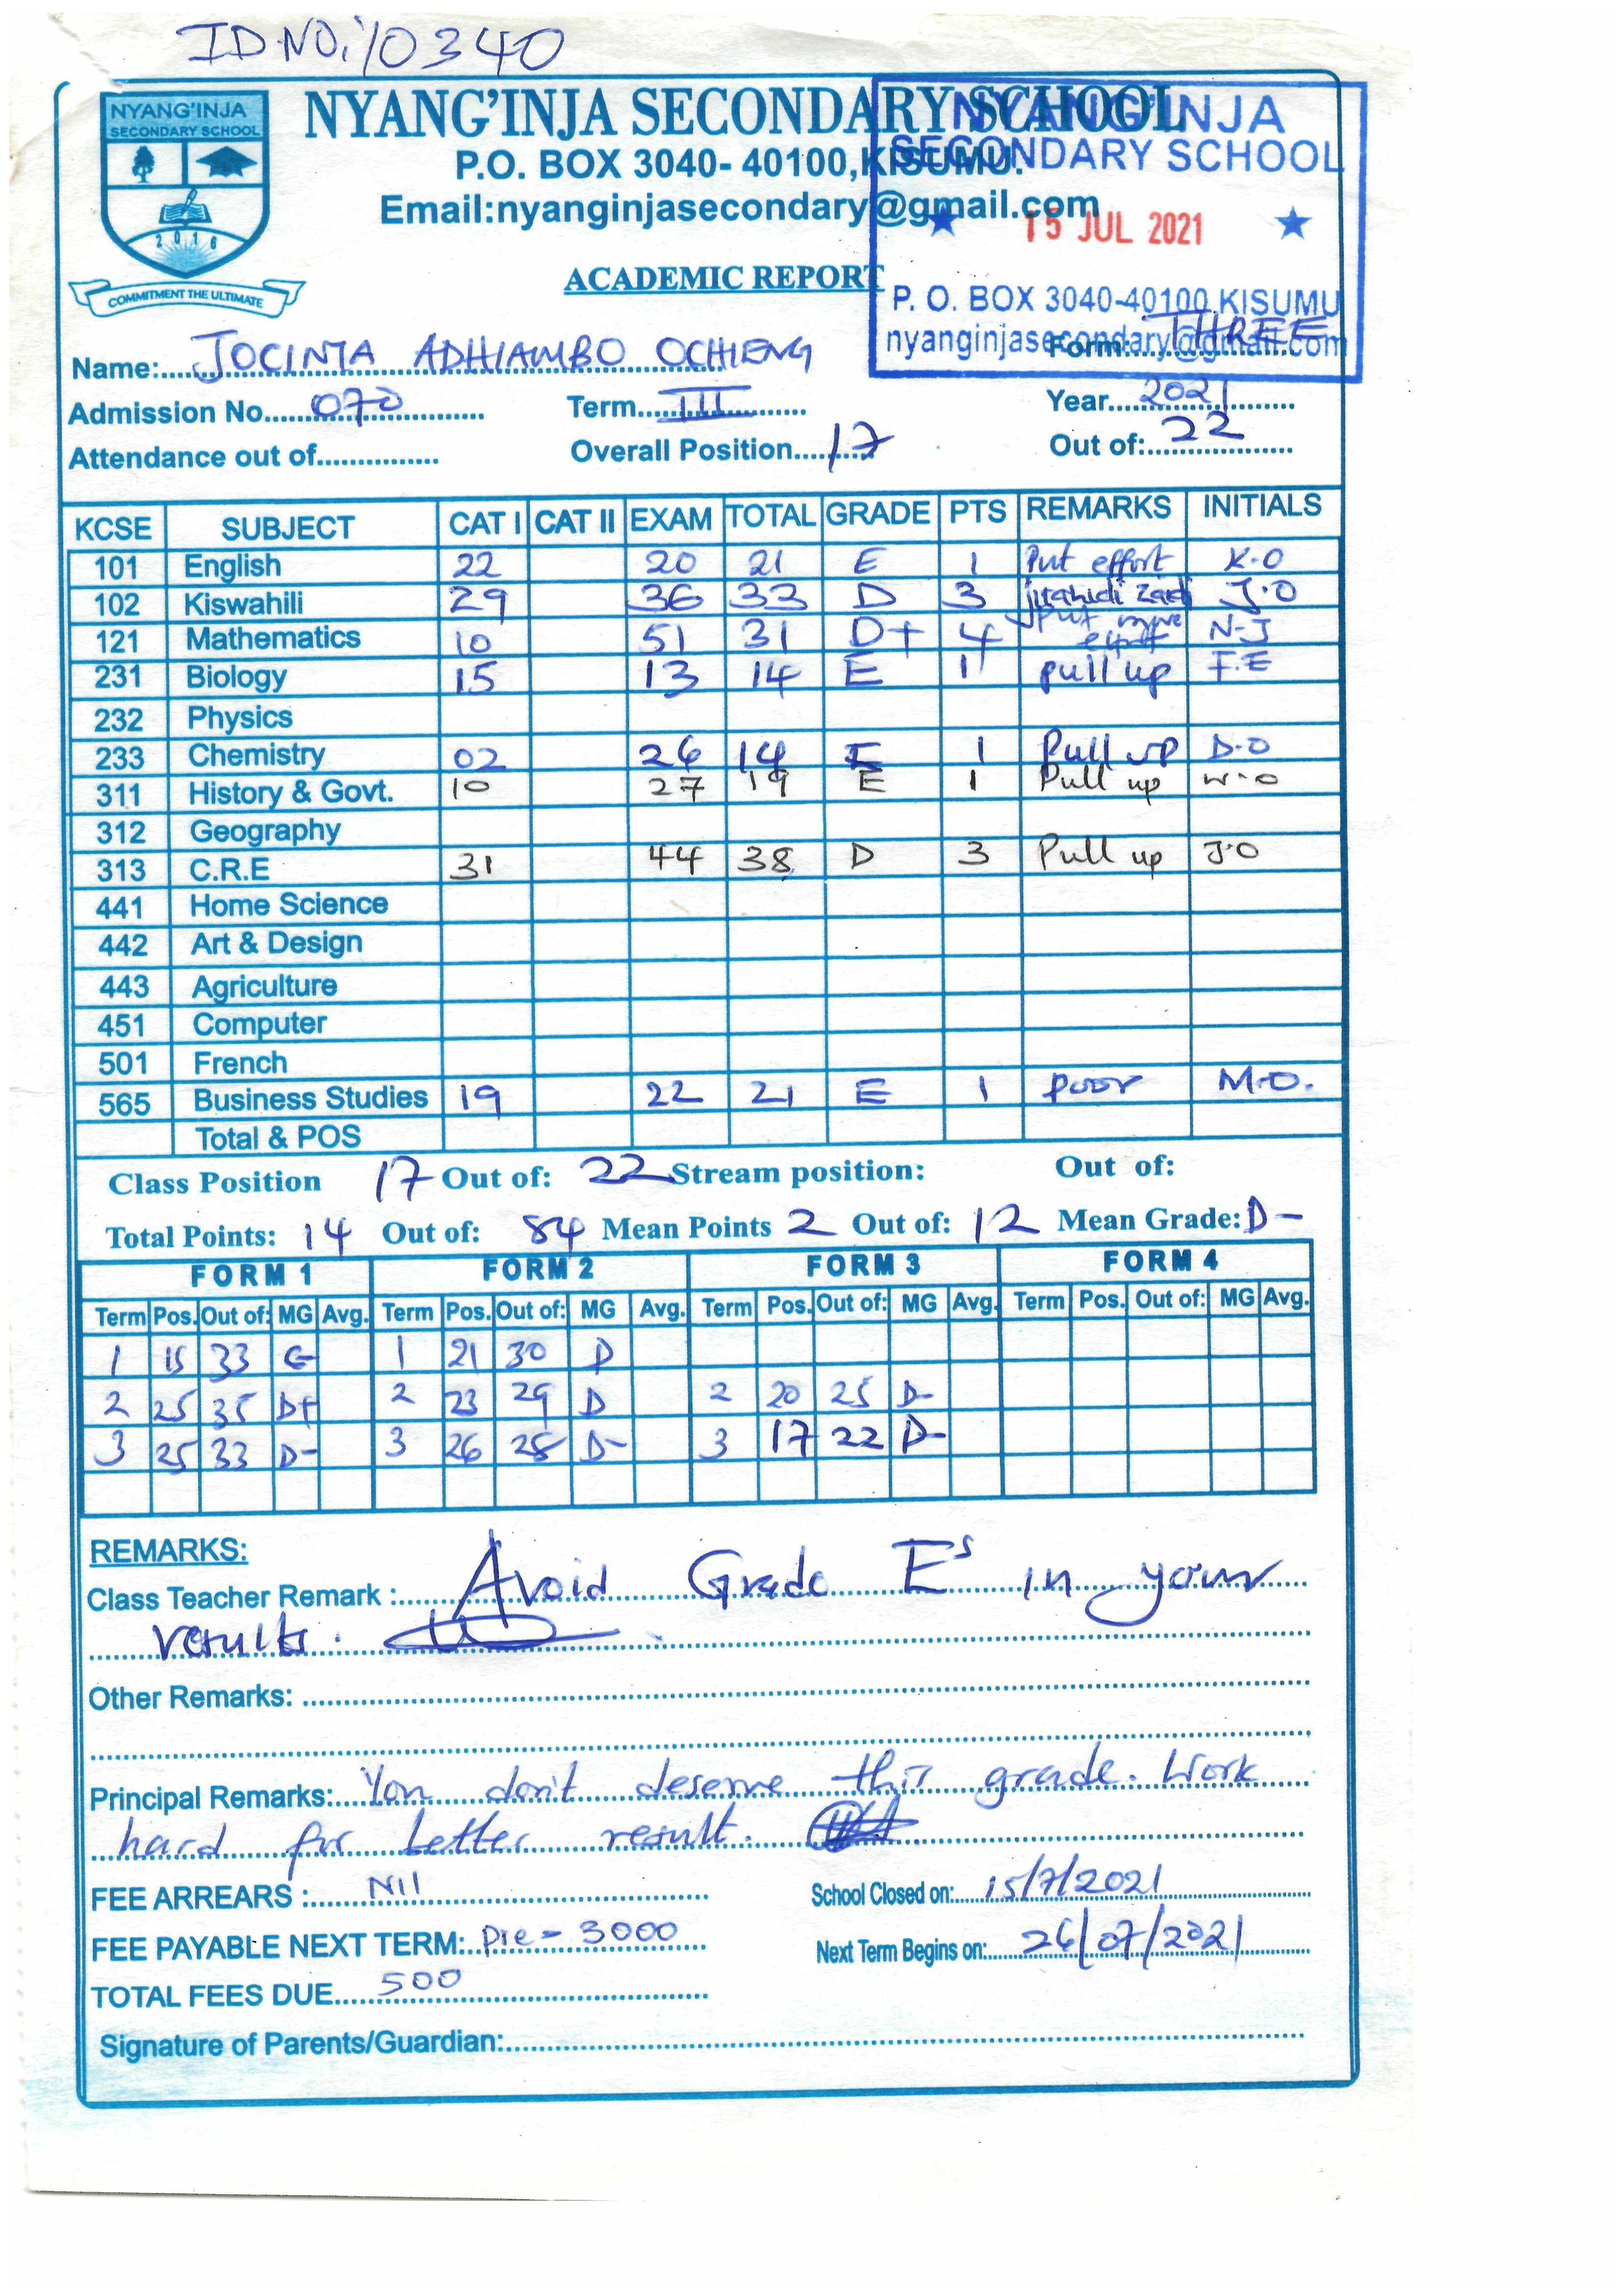 ID NO: 10340
NYANG'INJA
SECONDARY SCHOOL
2016
COMMITMENT THE ULTIMATE
NYANG'INJA SECONDARY SCHOOL
P.O. BOX 3040- 40100, KISUMU.
Email:nyanginjasecondary@gmail.com
ACADEMIC REPORT
NYANG'INJA
SECONDARY SCHOOL
15 JUL 2021
P. O. BOX 3040-40100, KISUMU
nyanginjasecondary@gmail.com
Name: JOCINTA ADHIAMBO OCHIENG Form: THREE
Admission No. 070 Term III Year 2021
Attendance out of Overall Position 17 Out of: 22
KCSE SUBJECT CAT I CAT II EXAM TOTAL GRADE PTS REMARKS INITIALS
101 English 22 20 21 E 1 Put effort K.O
102 Kiswahili 29 36 33 D 3 jitahidi zaidi J.O
121 Mathematics 10 51 31 D+ 4 Put more effort N.J
231 Biology 15 13 14 E 1 pull up F.E
232 Physics
233 Chemistry 02 26 14 E 1 Pull up D.O
311 History & Govt. 10 27 19 E 1 Pull up W.O
312 Geography
313 C.R.E 31 44 38 D 3 Pull up J.O
441 Home Science
442 Art & Design
443 Agriculture
451 Computer
501 French
565 Business Studies 19 22 21 E 1 poor M.O.
Total & POS
Class Position 17 Out of: 22 Stream position: Out of:
Total Points: 14 Out of: 84 Mean Points 2 Out of: 12 Mean Grade: D-
FORM 1 FORM 2 FORM 3 FORM 4
Term Pos. Out of: MG Avg. Term Pos. Out of: MG Avg. Term Pos. Out of: MG Avg. Term Pos. Out of: MG Avg.
1 15 33 C- 1 21 30 D
2 25 35 D+ 2 23 29 D 2 20 25 D-
3 25 33 D- 3 26 28 D- 3 17 22 D-
REMARKS:
Class Teacher Remark : Avoid Grade Es in your
results.
Other Remarks:
Principal Remarks: You don't deserve this grade. Work
hard for better result.
FEE ARREARS : Nil School Closed on: 15/7/2021
FEE PAYABLE NEXT TERM: Pre - 3000 Next Term Begins on: 26/07/2021
TOTAL FEES DUE 500
Signature of Parents/Guardian: